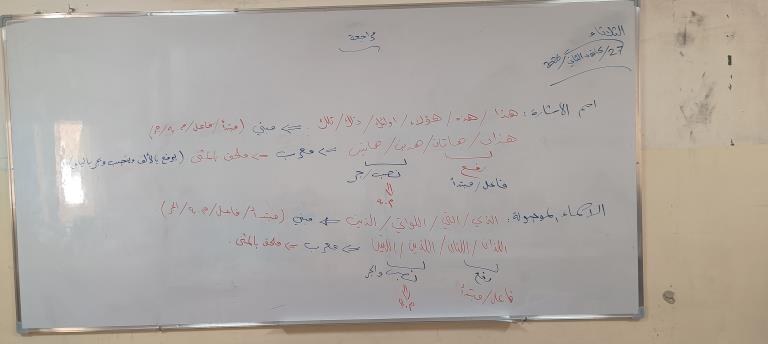 مراجعة
الثلاثاء
27/كانون الثاني/
اسم الأشارة: هذا/هذه/هؤلاء/اولئك/ذلك/تلك ⇐ مبني (مبتدأ/فاعل/م.به/جر)
هذان/هاتان/هذين/هاتين ⇐ معرب ⇐ ملحق بالمثنى (يرفع بالألف وينصب ويجر بالياء)
رفع نصب/جر
فاعل/مبتدأ م.به
الاسماء الموصولة: الذي/التي/اللواتي/الذين ⇐ مبني (مبتدأ/فاعل/م.به/الجر)
اللذان/اللتان/اللذين/اللتين ⇐ معرب ⇐ ملحق بالمثنى.
رفع نصب والجر
فاعل/مبتدأ م.به